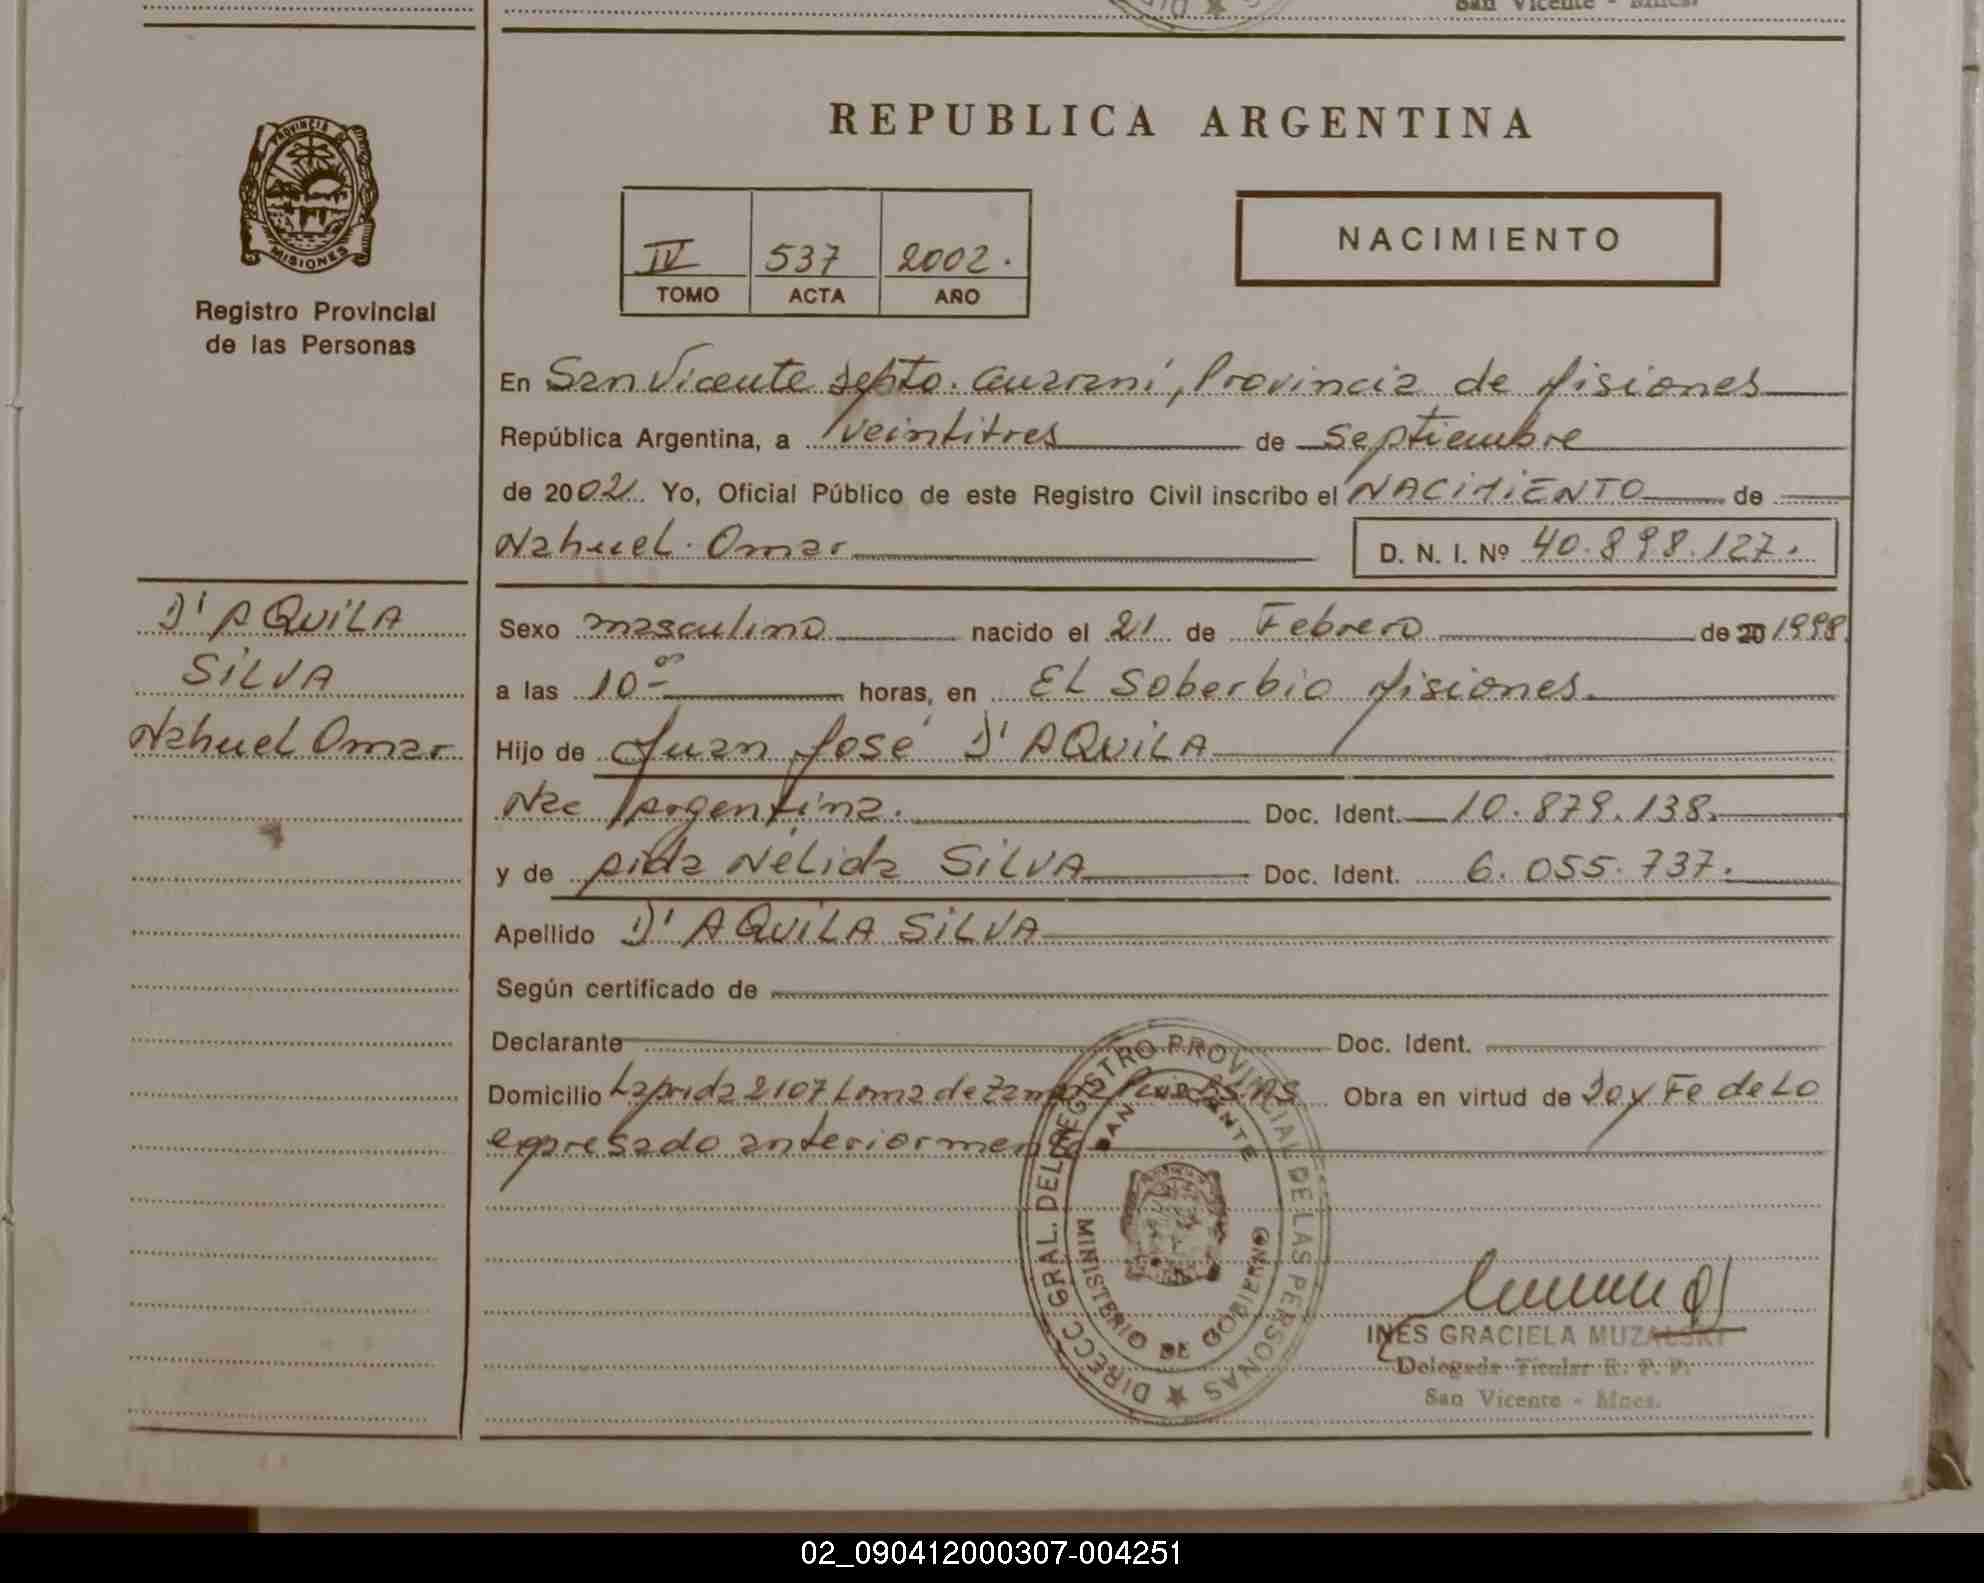 San Vicente - Mnes.
REPUBLICA ARGENTINA
PROVINCIA DE
MISIONES
Registro Provincial
de las Personas
IV 537 2002.
TOMO ACTA AÑO
NACIMIENTO
En San Vicente Depto. Guaraní, Provincia de Misiones
República Argentina, a veintitres de Septiembre
de 2002 Yo, Oficial Público de este Registro Civil inscribo el NACIMIENTO de
Nahuel Omar D. N. I. Nº 40.898.127.
D'AQUILA
SILVA
Nahuel Omar
Sexo masculino nacido el 21 de Febrero de 20 1998
a las 10 oo horas, en EL Soberbio Misiones.
Hijo de Juan José D'AQUILA
Nac Argentina. Doc. Ident. 10.879.138.
y de Aida Nélida SILVA Doc. Ident. 6.055.737.
Apellido D'AQUILA SILVA
Según certificado de
Declarante Doc. Ident.
Domicilio Laprida 2107 Loma de Zamora BS.AS Obra en virtud de Doy Fe de Lo
expresado anteriormente
DIRECC. GRAL. DEL REGISTRO PROVINCIAL DE LAS PERSONAS
SAN VICENTE
MINISTERIO DE GOBIERNO
INES GRACIELA MUZALSKI
Delegada Titular R. P. P.
San Vicente - Mnes.
02_090412000307-004251